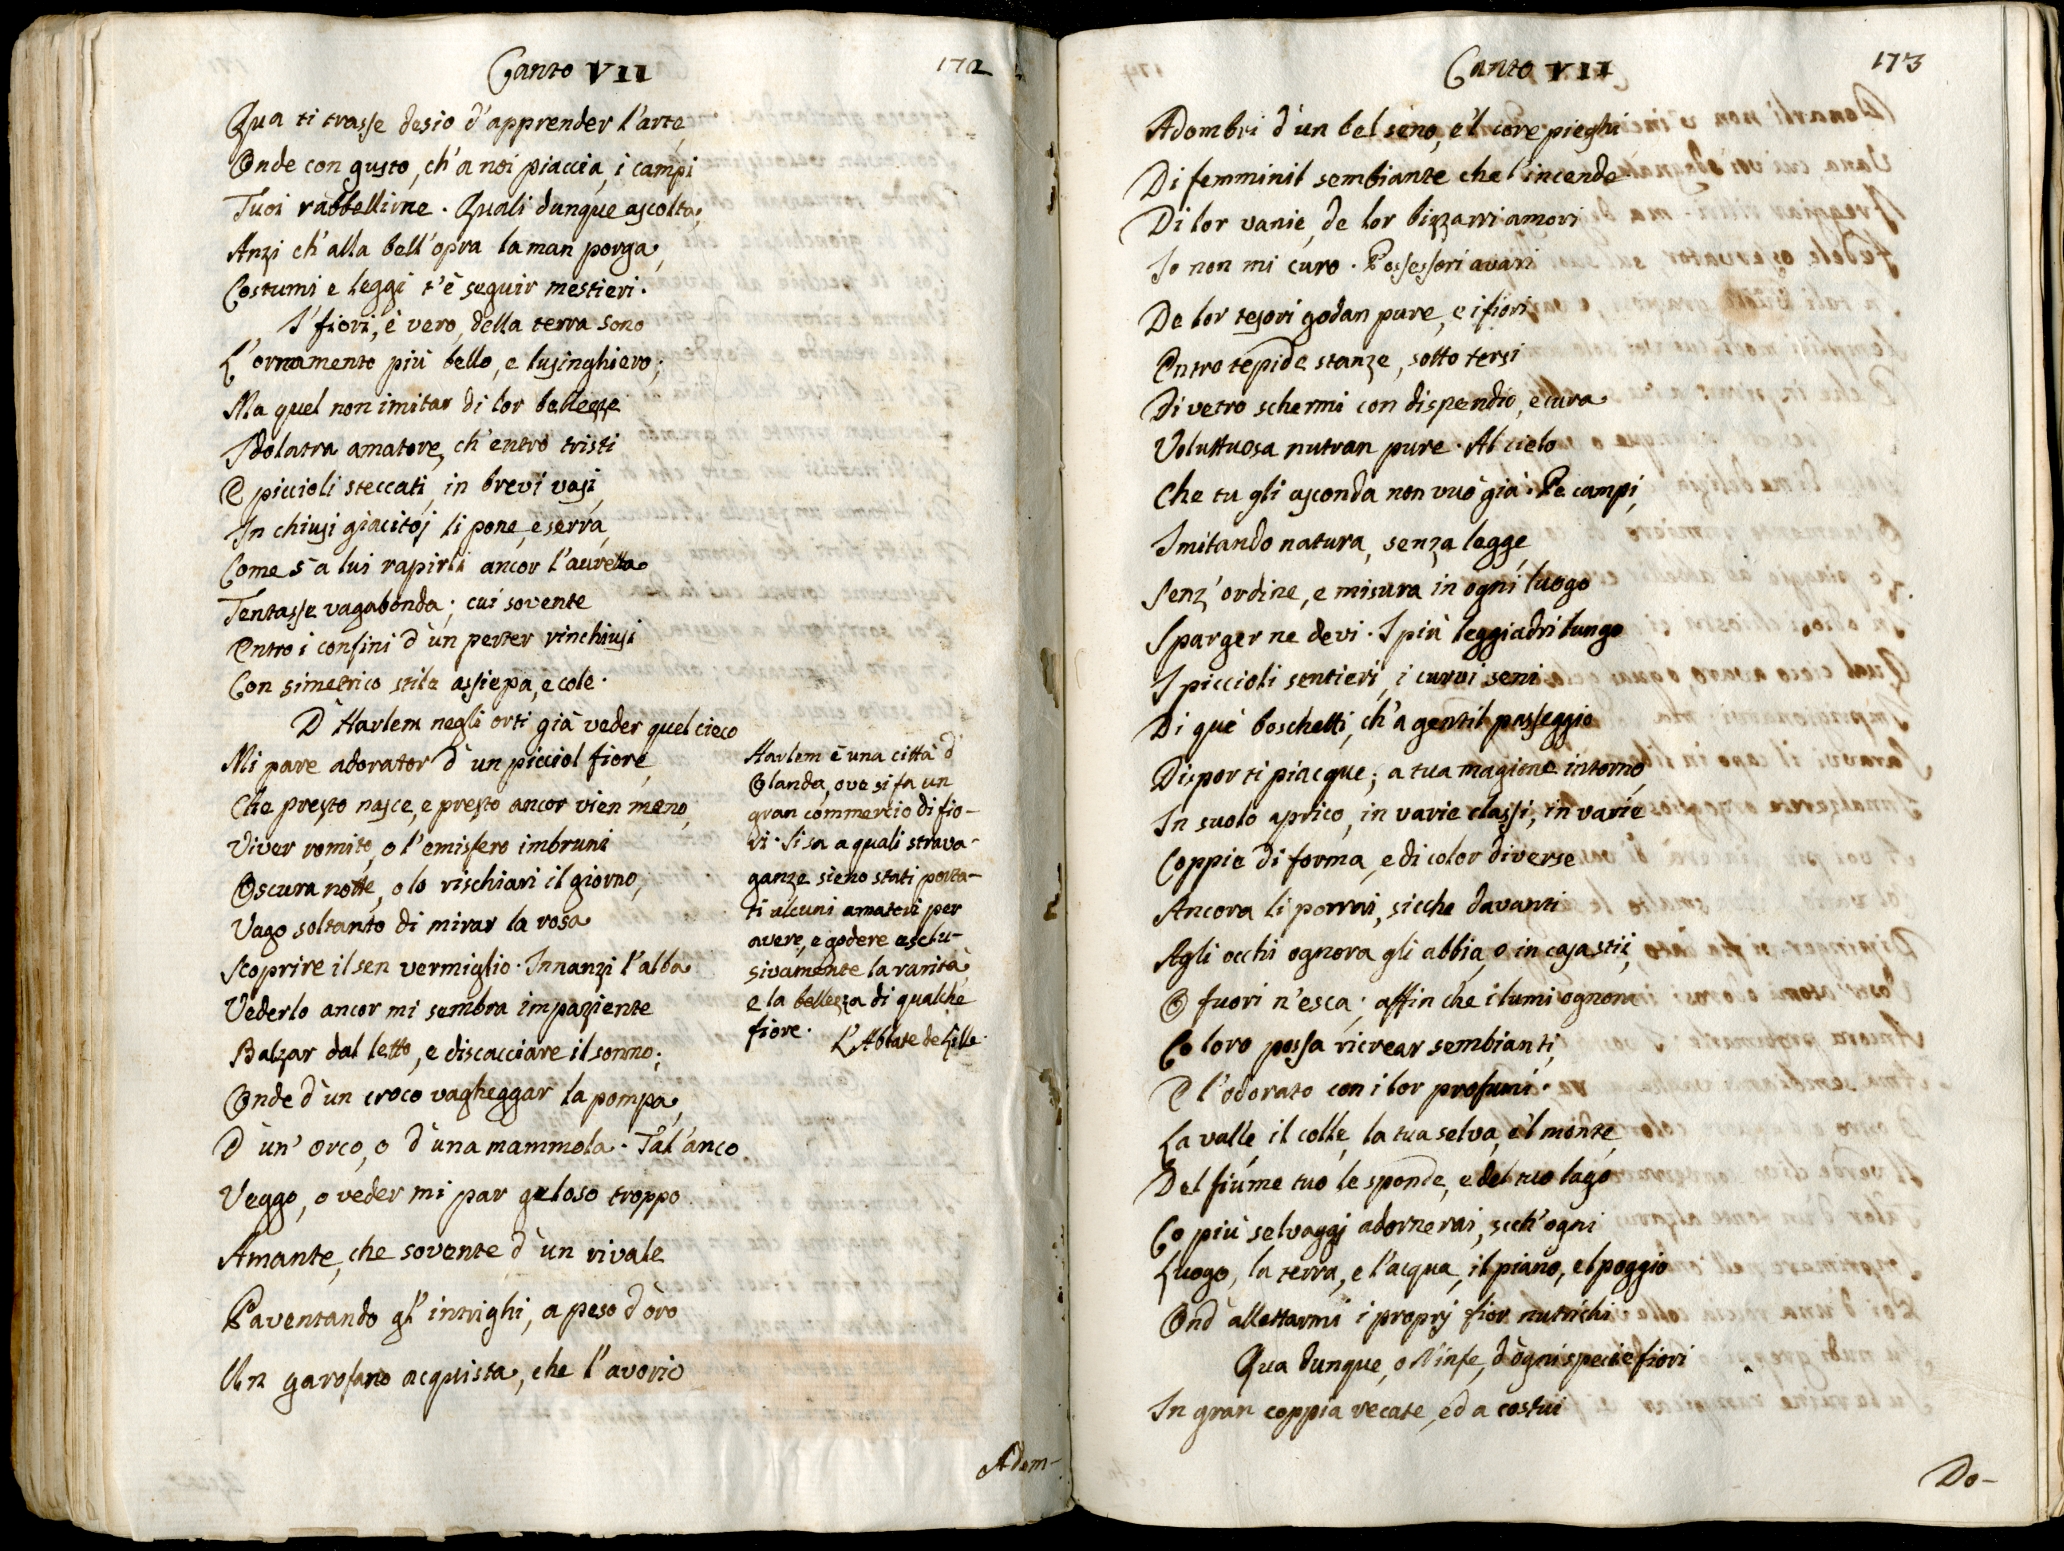 Canto VII
172
Qua ti trasse desio d'apprender l'arte,
Onde con gusto, ch'a noi piaccia, i campi
Tuoi rabbellirne. Quali dunque ascolta,
Anzi ch'alla bell'opra la man porga,
Costumi e leggi t'è seguir mestieri.
I fiori, è vero, della terra sono
L'ornamento più bello, e lusinghiero;
Ma quel non imitar di lor bellezze
Idolatra amatore, ch'entro tristi
E piccioli steccati, in brevi vasi,
In chiusi giacitoj li pone, e serra,
Come s'a lui rapirli ancor l'auretta
Tentasse vagabonda; cui sovente
Entro i confini d'un perter rinchiusi
Con simetrico stile assiepa, e cole.
D'Harlem negli orti già veder quel cieco
Mi pare adorator d'un picciol fiore,
Che presto nasce, e presto ancor vien meno,
Viver romito, o l'emisfero imbruni
Oscura notte, o lo rischiari il giorno,
Vago soltanto di mirar la rosa
Scoprire il sen vermiglio. Innanzi l'alba
Vederlo ancor mi sembra impaziente
Balzar dal letto, e discacciare il sonno;
Onde d'un croco vagheggar la pompa,
D'un' orco, o d'una mammola. Tal'anco
Veggo, o veder mi par geloso troppo
Amante, che sovente d'un rivale
Paventando gl'intrighi, a peso d'oro
Un garofano acquista, che l'avorio
Harlem è una città d'
Olanda, ove si fa un
gran commercio di fio-
ri. Si sa a quali strava-
ganze sieno stati porta-
ti alcuni amatori per
avere, e godere esclu-
sivamente la rarità,
e la bellezza di qualche
fiore. L'Abbate de Lille.
Adom-
Canto VII
173
Adombri d'un bel seno, e'l core pieghi
Di femminil sembiante che l'incende
Di lor vanie, de lor bizzarri amori
Io non mi curo. Possessori avari
De lor tesori godan pure, e i fiori
Entro tepide stanze, sotto tersi
Di vetro schermi con dispendio, e cura
Voluttuosa nutran pure. Al cielo
Che tu gli asconda non vuo' già. Pe campi,
Imitando natura, senza legge,
Senz'ordine, e misura in ogni luogo
Sparger ne devi. I più leggiadri lungo
I piccioli sentieri, i curvi seni
Di que' boschetti, ch'a gentil passeggio
Dispor ti piacque; a tua magione intorno,
In suolo aprico, in varie classi, in varie
Coppie di forma, e di color diverse
Ancora li porrai, sicche davanti
Agli occhi ognora gli abbia, o in casa stii,
O fuori n'esca; affin che i lumi ognora
Co loro possa ricrear sembianti,
E l'odorato con i lor profumi.
La valle, il colle, la tua selva, e'l monte,
Del fiume tuo le sponde, e del tuo lago
Co più selvaggj adornerai, sicch'ogni
Luogo, la terra, e l'acqua, il piano, e'l poggio
Ond'allettarmi i proprj fior nutrichi
Qua dunque, o Ninfe, d'ogni specie fiori
In gran coppia recate, ed a costui
Do-